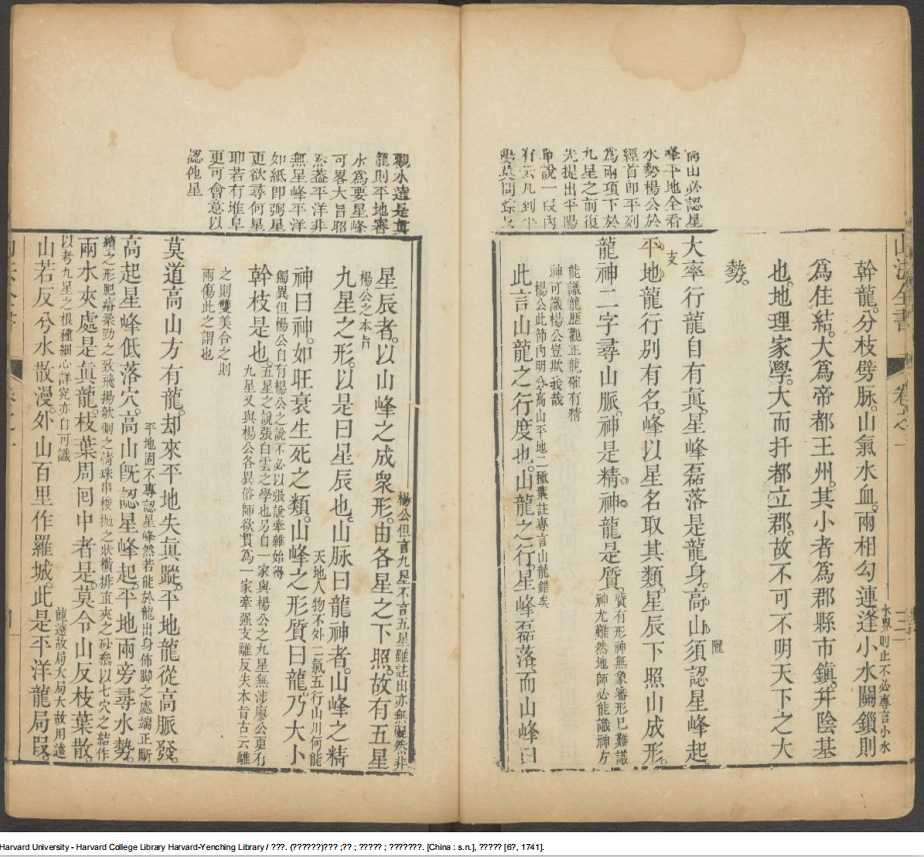 幹龍分枝劈脉山氣水血兩相勾連逢小水關鎖則
水界則止不必專言小水
爲住結大爲帝都王州其小者爲郡縣市鎮幷陰基
也地理家學大而扞都立郡故不可不明天下之大
勢
高山必認星
峰平地全看
水勢楊公於
經首卽平列
爲兩項下於
九星之前復
先提出平陽
單說一段內
有云凡到平
洋莫問踪
大率行龍自有眞星峰磊落是龍身高山須認星峰起
平地龍行别有名峰以星名取其類星辰下照山成形
龍神二字尋山脉神是精神龍是質
質有形神無象審形已難識
神尤難然地師必能識神方
能識龍歷觀正龍確有精
神可識楊公豈欺我哉
楊公此節內明分高山平地二種葉註專言山龍錯矣
此言山龍之行度也山龍之行星峰磊落而山峰曰
觀水遠是眞
龍則平地審
水爲要星峰
可畧大旨昭
然蓋平洋非
無星峰平洋
如紙卽弼星
更欲尋何星
耶若有堆阜
更可會意以
認他星
星辰者以山峰之成衆形由各星之下照故有五星
楊公但言九星不言五星雖註出亦無礙然非
楊公之本旨
九星之形以是曰星辰也山脉曰龍神者山峰之精
神曰神如旺衰生死之類山峰之形質曰龍乃大小
天地人物不外二氣五行山川何能
獨異但楊公自有楊公之說不必以張說牽雜始得
幹枝是也
五星之說張白雲之學也另自一家與楊公之九星無涉廖公更有
九星又與楊公各異俗師欲貫爲一家牽强支離反失本旨古云離
之則雙美合之則
兩傷此之謂也
莫道高山方有龍却來平地失眞蹤平地龍從高脈發
高起星峰低落穴高山旣認星峰起平地兩旁尋水勢
平地固不專認星峰然若能於龍出身佈脚之處端正斷
續之形肥瘠柔勁之致飛揚欹側之情珠串梭拋之狀橫排直夾之砂叅以七穴之結作
以考九星之根種細心詳究亦自可識
兩水夾處是眞龍枝葉周囘中者是莫令山反枝葉散
山若反兮水散漫外山百里作羅城此是平洋龍局叚
龍遠故局大局大故用遠
Harvard University - Harvard College Library Harvard-Yenching Library / ???. (??????)??? ;?? ; ????? ; ???????. [China : s.n.], ????? [6?, 1741].